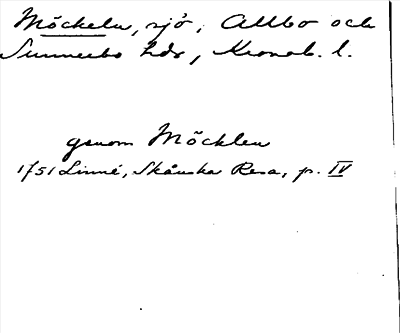 Möckeln, sjö, Allbo och
Sunnerbo hdr, Kronob. l.
genom Möcklen
1751 Linné, Skånska Resa, p. IV